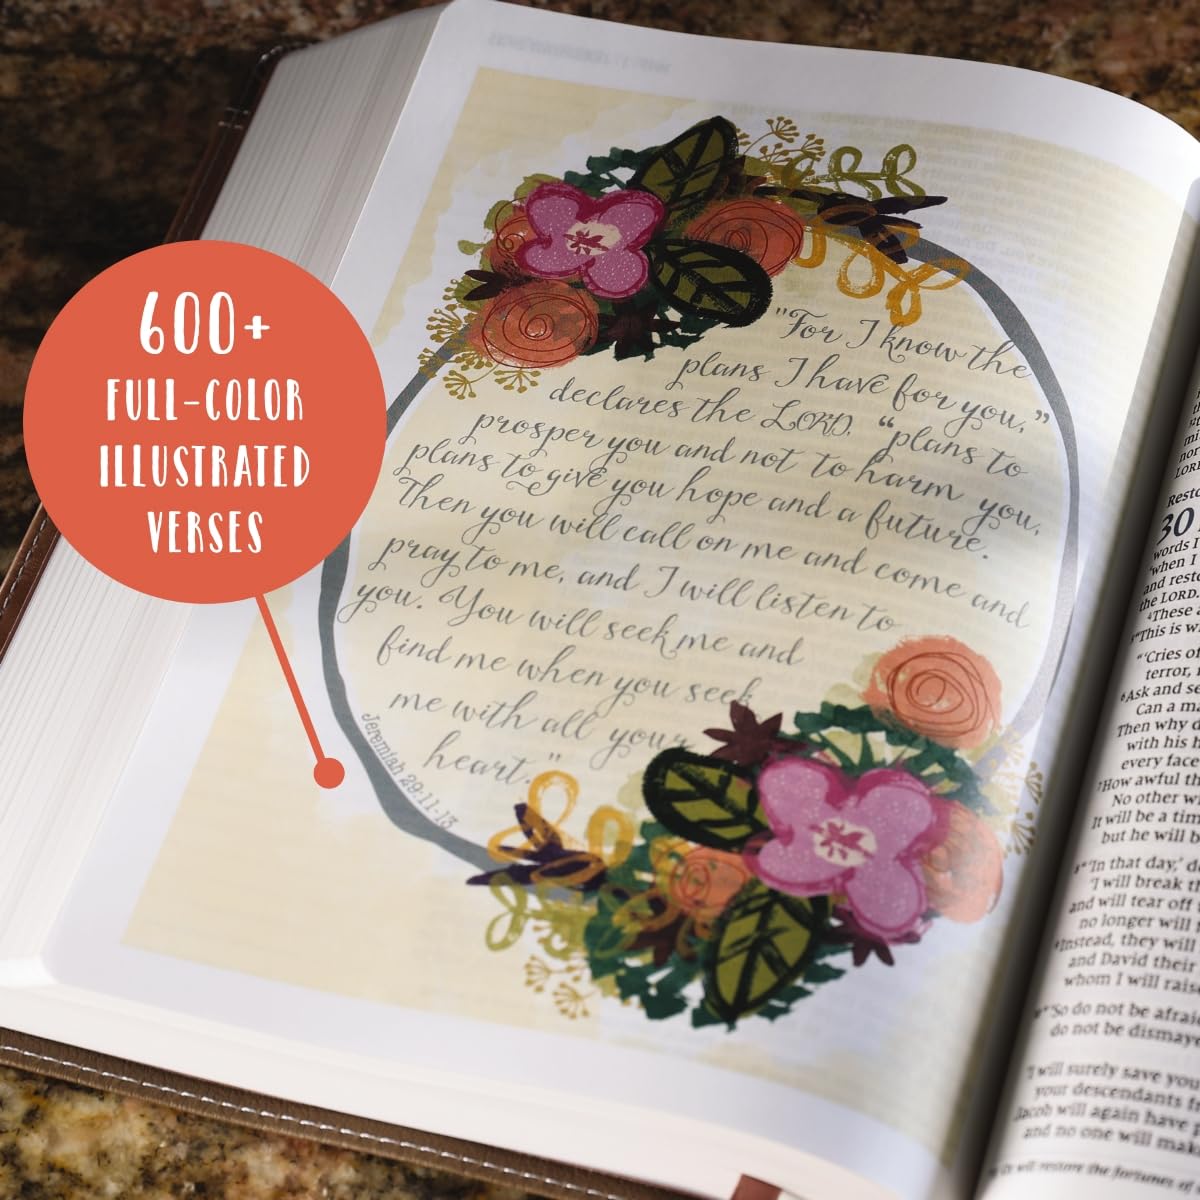 600+
FULL-COLOR
ILLUSTRATED
VERSES
"For I know the
plans I have for you,"
declares the LORD, "plans to
prosper you and not to harm you,
plans to give you hope and a future.
Then you will call on me and come and
pray to me, and I will listen to
you. You will seek me and
find me when you seek
me with all your
heart."
Jeremiah 29:11-13
LORD
Resto
30
words I
'when I
and resto
the LORD.
⁴These a
⁵"This is w
"'Cries of
terror,
⁶Ask and se
Can a ma
Then why d
with his h
every face
⁷How awful th
No other w
It will be a tim
but he will b
⁸"'In that day,' de
'I will break th
and will tear off
no longer will
⁹Instead, they will
and David their
whom I will raise
¹⁰"'So do not be afraid
do not be dismaye
'I will surely save you
your descendants fr
Jacob will again have p
and no one will mak